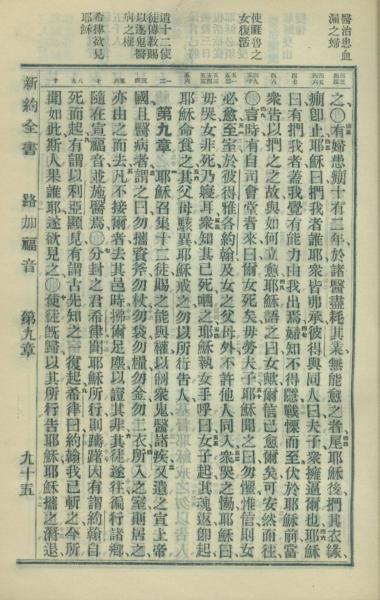 醫治患血
漏之婦
使睚魯之
女復活
遣十二使
徒傳教賜
以逐鬼醫
病之權
希律欲見
耶穌
之○有婦患漏十有二年於諸醫盡耗其業無能愈之者尾耶穌後捫其衣緣
漏卽止耶穌曰捫我者誰耶衆皆弗承彼得與同人曰夫子衆擁逼爾也耶穌
曰有捫我者蓋我覺有能力由我出焉婦知不得隱戰慄而至伏於耶穌前當
衆吿以捫之之故與如何立愈耶穌語之曰女歟爾信已愈爾矣可安然而往
○言時有自司會堂者來曰爾女死矣毋勞夫子耶穌聞之曰勿懼惟信則女
必愈至室於彼得雅各約翰及女之父母外不許他人同入衆哭之慟耶穌曰
毋哭女非死乃寢耳衆知其已死哂之耶穌執女手呼曰女子起其魂返卽起
耶穌命食之其父母駭異耶穌戒之勿以所行吿人
第九章 耶穌召集十二徒賜之能與權以制衆鬼醫諸疾又遣之宣上帝
國且醫病者謂之曰勿攜資斧勿杖勿袋勿糧勿金勿二衣所入之室則居之
亦由之而去凡不接爾者去其邑時拂爾足塵以證其非其徒遂往徧行諸鄉
隨在宣福音並施醫焉○分封之君希律聞耶穌所行則躊躇因有謂約翰自
死而起有謂以利亞顯見有謂古先知之一復起希律曰約翰我已斬之今所
聞如此斯人果誰耶遂欲見之○使徒旣歸以其所行吿耶穌耶穌攜之潛退
新約全書 路加福音 第九章 九十五